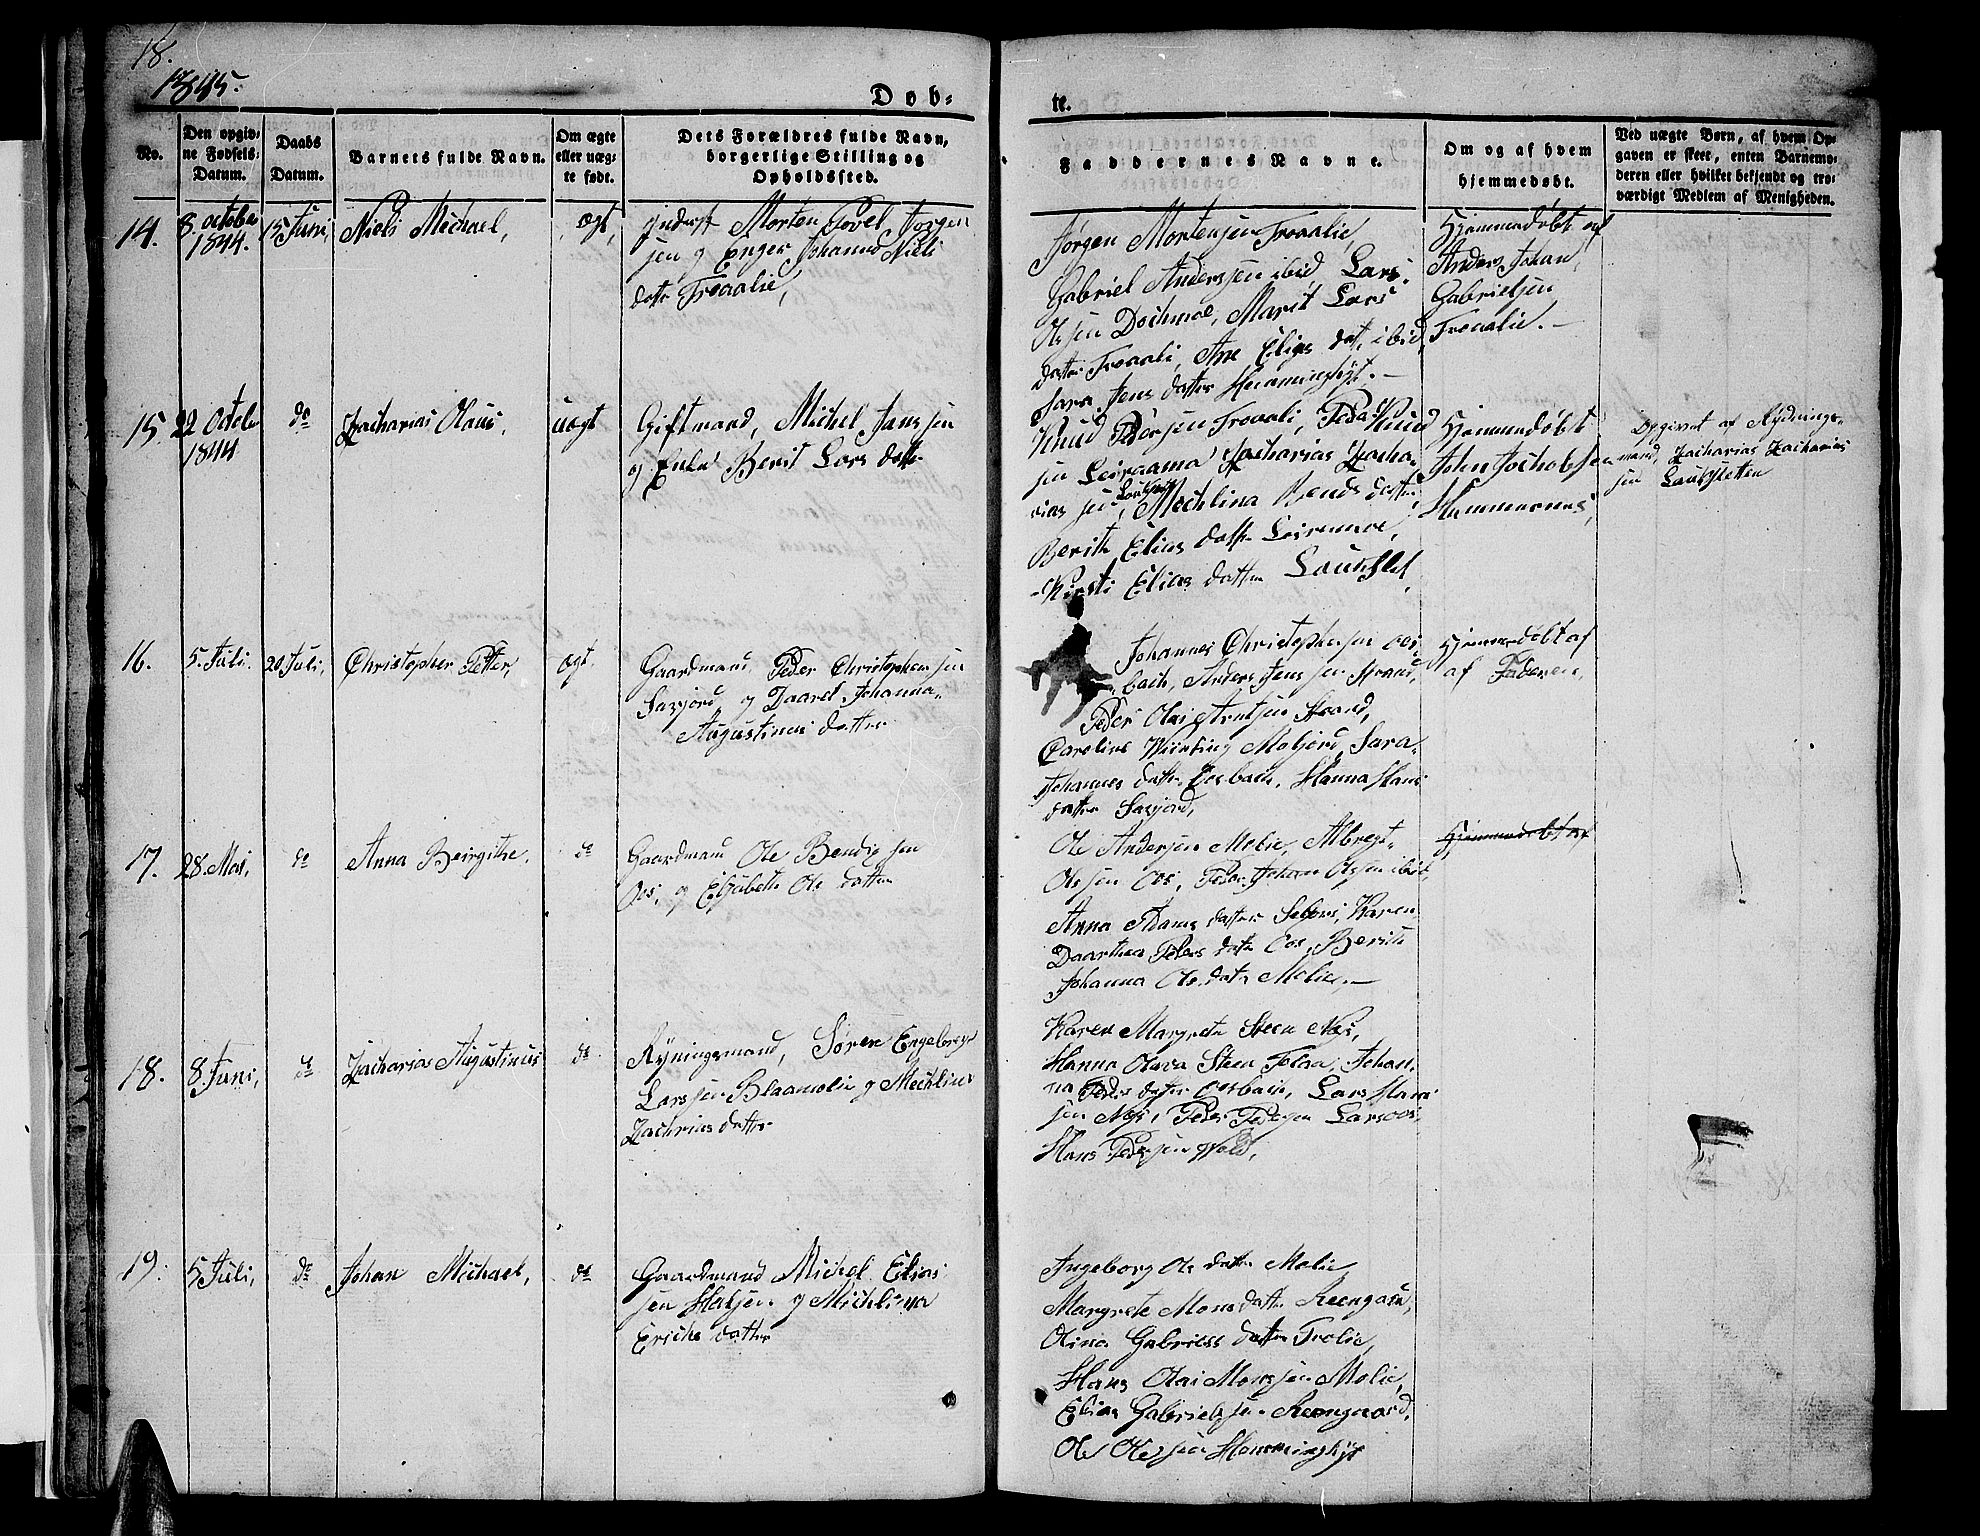 18.
1845.
Dob-
te.
No.
Den opgiv-
ne Fødsels-
Datum.
Daabs
Datum.
Barnets fulde Navn.
Om ægte
eller uæg-
te født.
Dets Forældres fulde Navn,
borgerlige Stilling og
Opholdssted.
Faddernes Navne.
Om og af hvem
hjemmedøbt.
Ved uægte Børn, af hvem Op-
gaven er skeet, enten Barnemo-
deren eller hvilket bekjendt og tro-
værdigt Medlem af Menigheden.
14.
8 octobr
1844.
15 Juni,
Niels Michael,
ægt,
Morten Povel Jørgen
sen og Inger Johanna Niels
datter Troaalie,
Jørgen Mortensen Troaalie,
Gabriel Anderssen ibid, Lars
Olssen Dochmoe, Marit Lars
datter Troaali, Ane Elias dat, ibid,
Sara Jens datter Hemminghyt. —
Hjemmedøbt af
Anders Johan
Gabrielsen
Troaalie. —
15.
22 Octobr
1844
do
Zacharias Olaus,
uægt
Giftmand, Michel Janssen
og Enke Berit Lars datter
Knud Pedersen Troaali, Peder Knud
sen Leiraamo Zacharias Zacha-
rias sen, Mechlina Bends datter
Berith Elias datter Leirmoe,
Kirsti Elias datter Lausslet,
Hjemmedøbt
John Jochobsen
Hammernes,
Opgivet af Rydnings-
mand, Zacharias Zacharias
sen Lausletten
16.
5. Juli
20 Juli,
Christopher Petter,
ægt.
Gaardmand Peder Christophersen
Saxjord, og Daarel Johanna
Augustinus datter
Johannes Christophersen Oos-
bach, Anders Jens sen Strand,
Peder Olai Arntsen Strand,
Carolius Wiinting Mofjord, Sara
Johannes datter Oosbach, Hanna Hans
datter Saxjord,
Hjemmedøbt af
af Faderen,
17.
28. Mai,
do
Anna Beirgithe,
do
Gaardmand Ole Bendix sen
Oos, og Elisabeth Ole datter
Ole Andersen Molie, Albregt
Olssen Oos, Peder Johan Olssen ibid,
Anna Adams datter Selfors, Karen
Daarthea Peders datter Oos, Berith
Johanna Ols datr Molie, —
Hjemmedøbt af
18.
8 Juni,
do
Zacharias Augustinus
do
Rydningsmand, Søren Engebregt
Larssen Blaamolie og Mechline
Zachrias datter
Karen Margrete Steen Næs,
Hanna Olava Steen Johan
na Peders datter Oosbach, Lars Hans
sen Næs, Peder Pedersen Larsoos,
Hans Pedersen
19.
5 Juli,
do
Johan Michael,
do
Gaardmand Michel Elias
sen og Michlina
Erichs datter
Ingeborg Ols datter Molie
Margrete Mons datter Reengaard,
Olina Gabriels datter Trolie,
Hans Olai Monssen Molie,
Elias Gabrielssen Reengaard,
Ole Olessen Hemminghyt